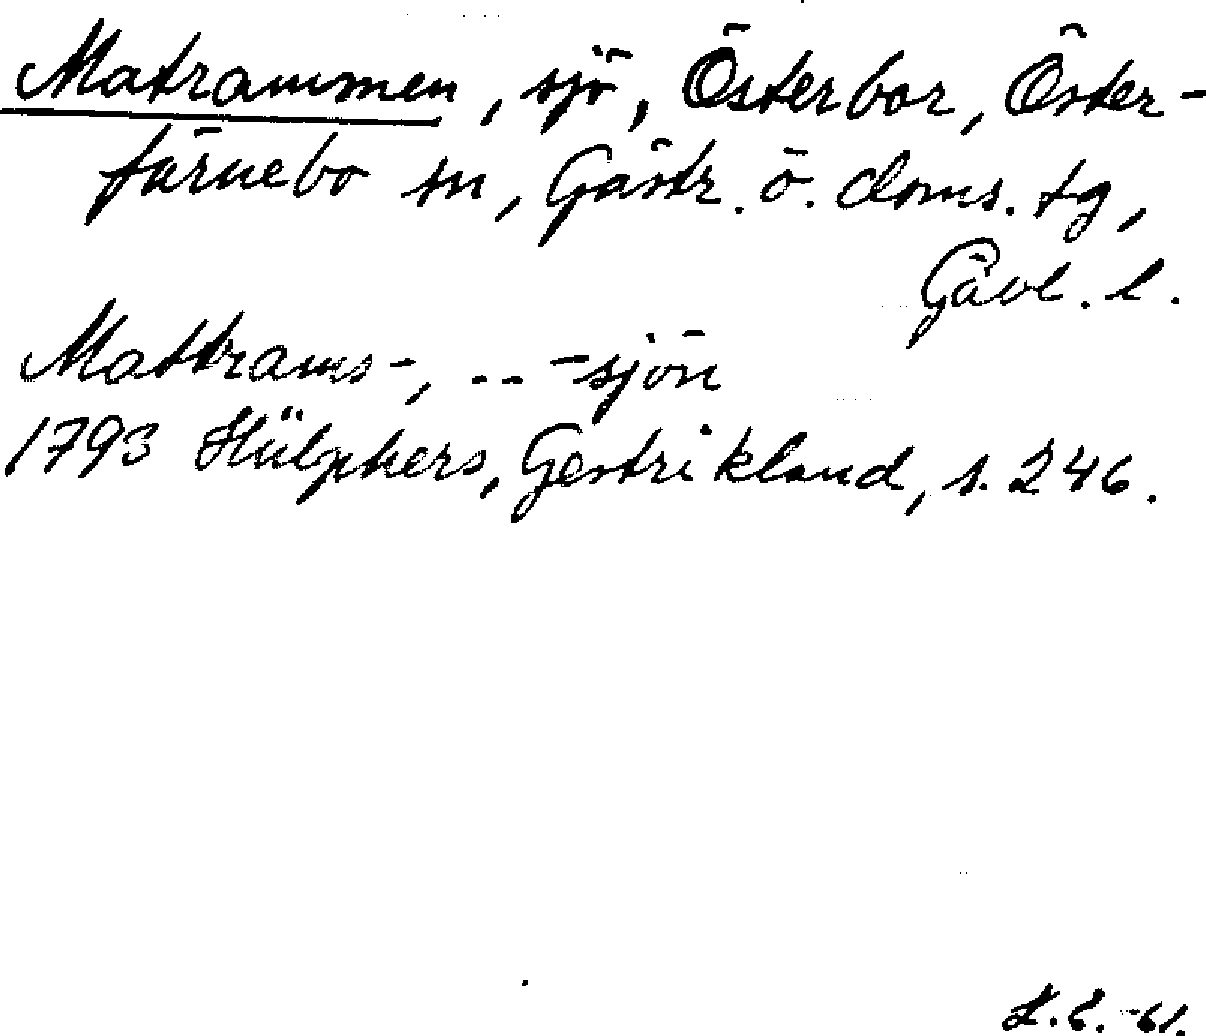 Matrammen, sjö, Österbor, Öster-
färnebo sn, Gästr. ö. doms. tg,
Gävl. l.
Mattrams-, -- -sjön
1793 Hülphers, Gestrikland, s. 246.
-61.